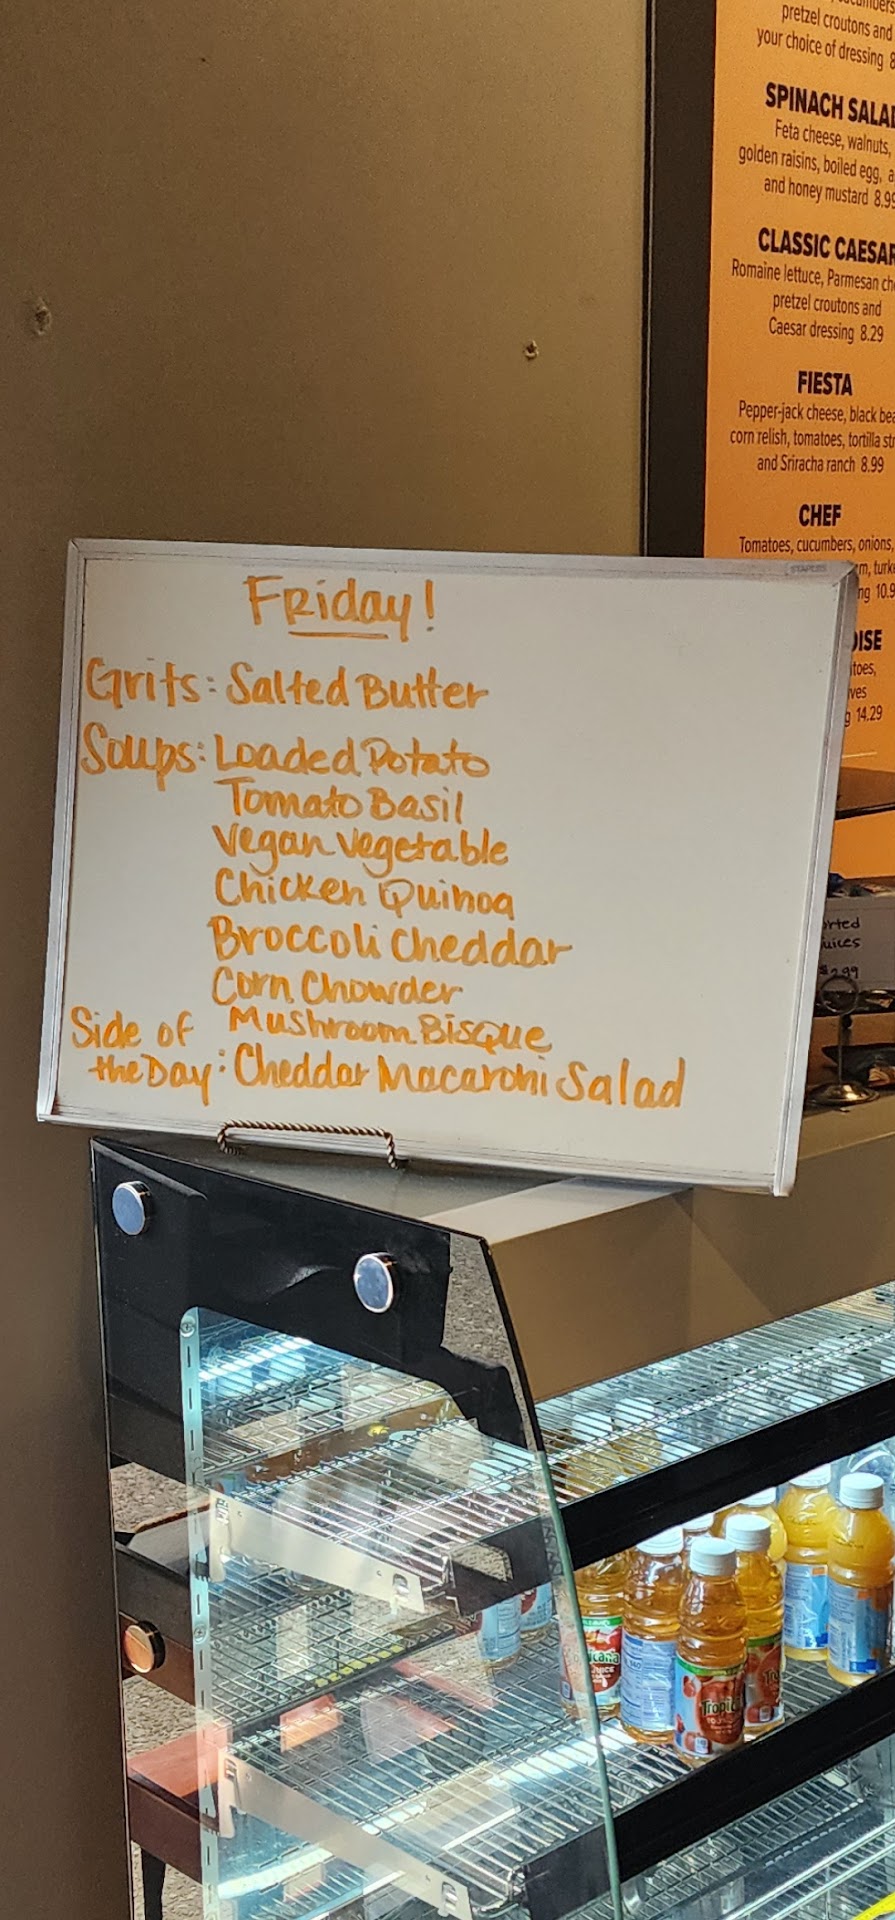 pretzel croutons and
your choice of dressing
SPINACH SALAD
Feta cheese, walnuts,
golden raisins, boiled egg,
and honey mustard 8.99
CLASSIC CAESAR
Romaine lettuce, Parmesan
pretzel croutons and
Caesar dressing 8.29
FIESTA
Pepper-jack cheese, black
corn relish, tomatoes, tortilla
and Sriracha ranch 8.99
CHEF
Tomatoes, cucumbers, onions,
14.29
STAPLES
Friday!
Grits: Salted Butter
Soups: Loaded Potato
Tomato Basil
Vegan Vegetable
Chicken Quinoa
Broccoli Cheddar
Corn Chowder
Mushroom Bisque
Side of
the Day: Cheddar Macaroni Salad
Tropicana